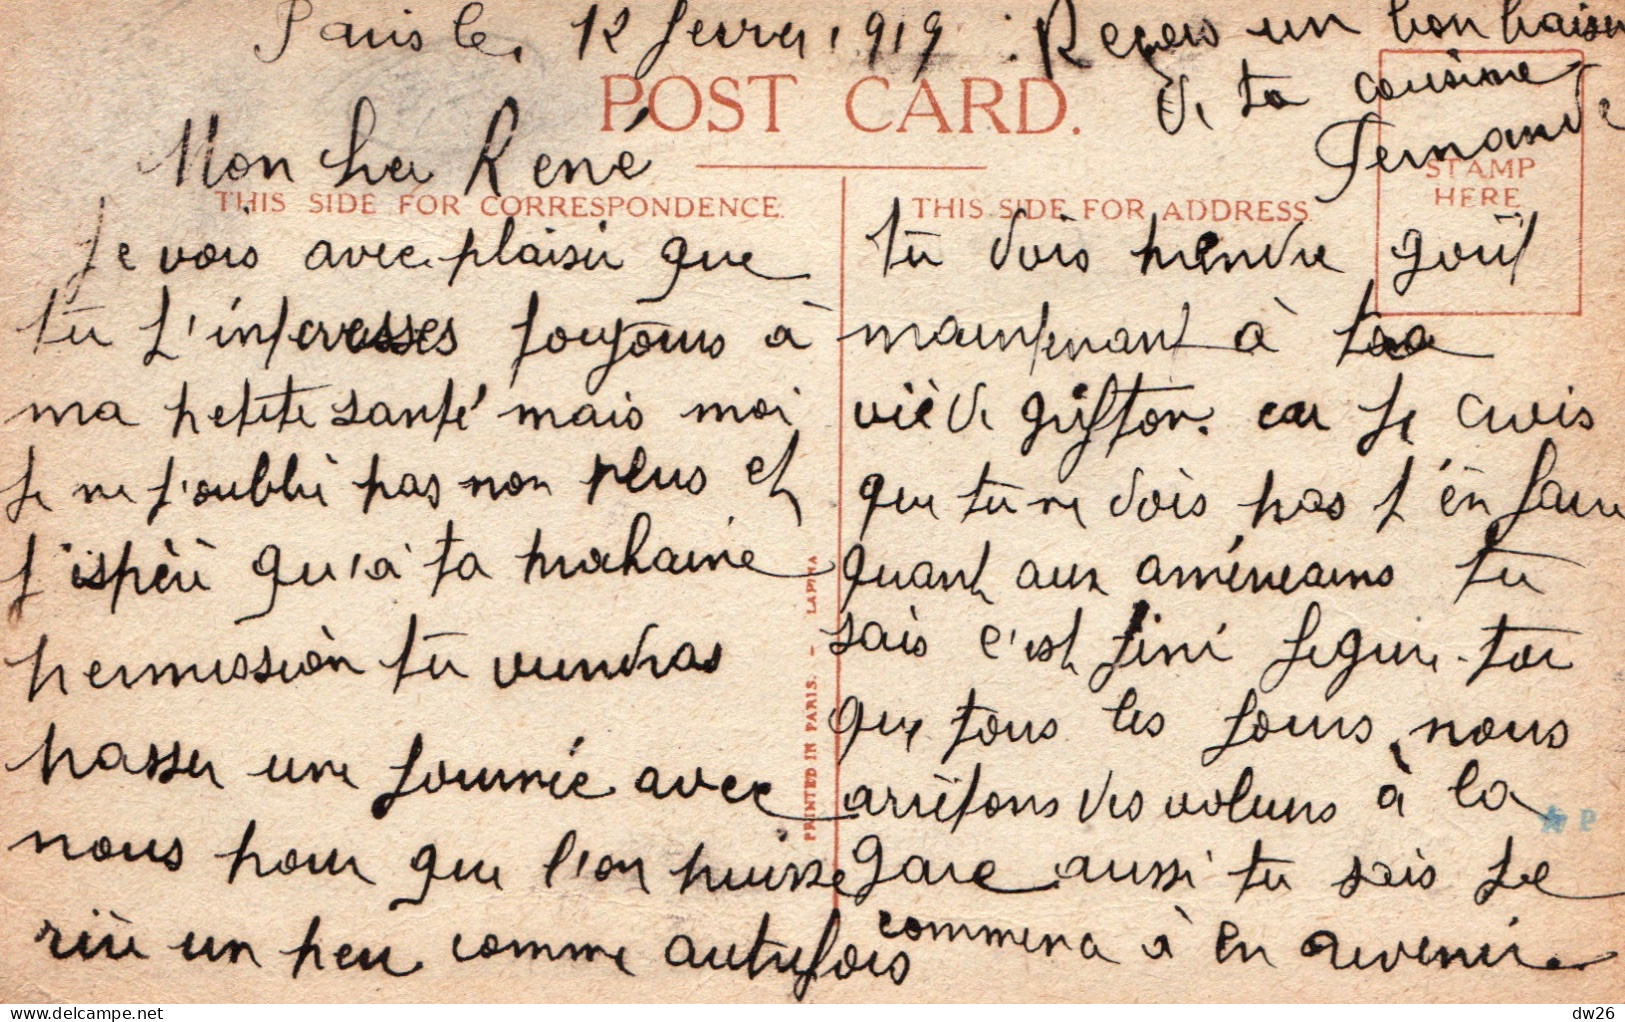 Paris le, 12 fevrier 1919
POST CARD.
Mon cher René
THIS SIDE FOR CORRESPONDENCE.
Je vois avec plaisir que
tu t'interesses toujours à
ma petite santé mais moi
Je ne t'oublie pas non plus et
J'espère qu'à ta prochaine
permission tu viendras
passer une Journée avec
nous pour que l'on puisse
rire un peu comme autrefois
PRINTED IN PARIS. - LAPINA
THIS SIDE FOR ADDRESS
STAMP
HERE
tu dois prendre goût
maintenant à ta
vie de griffton. car Je crois
que tu ne dois pas t'en faire
quant aux américains tu
sais c'est fini figure-toi
que tous les Jours nous
arrêtons des voleurs à la
gare aussi tu sais Je
commence à en revenir
Reçois un bon baiser
de ta cousine
Fernande
P
dw26